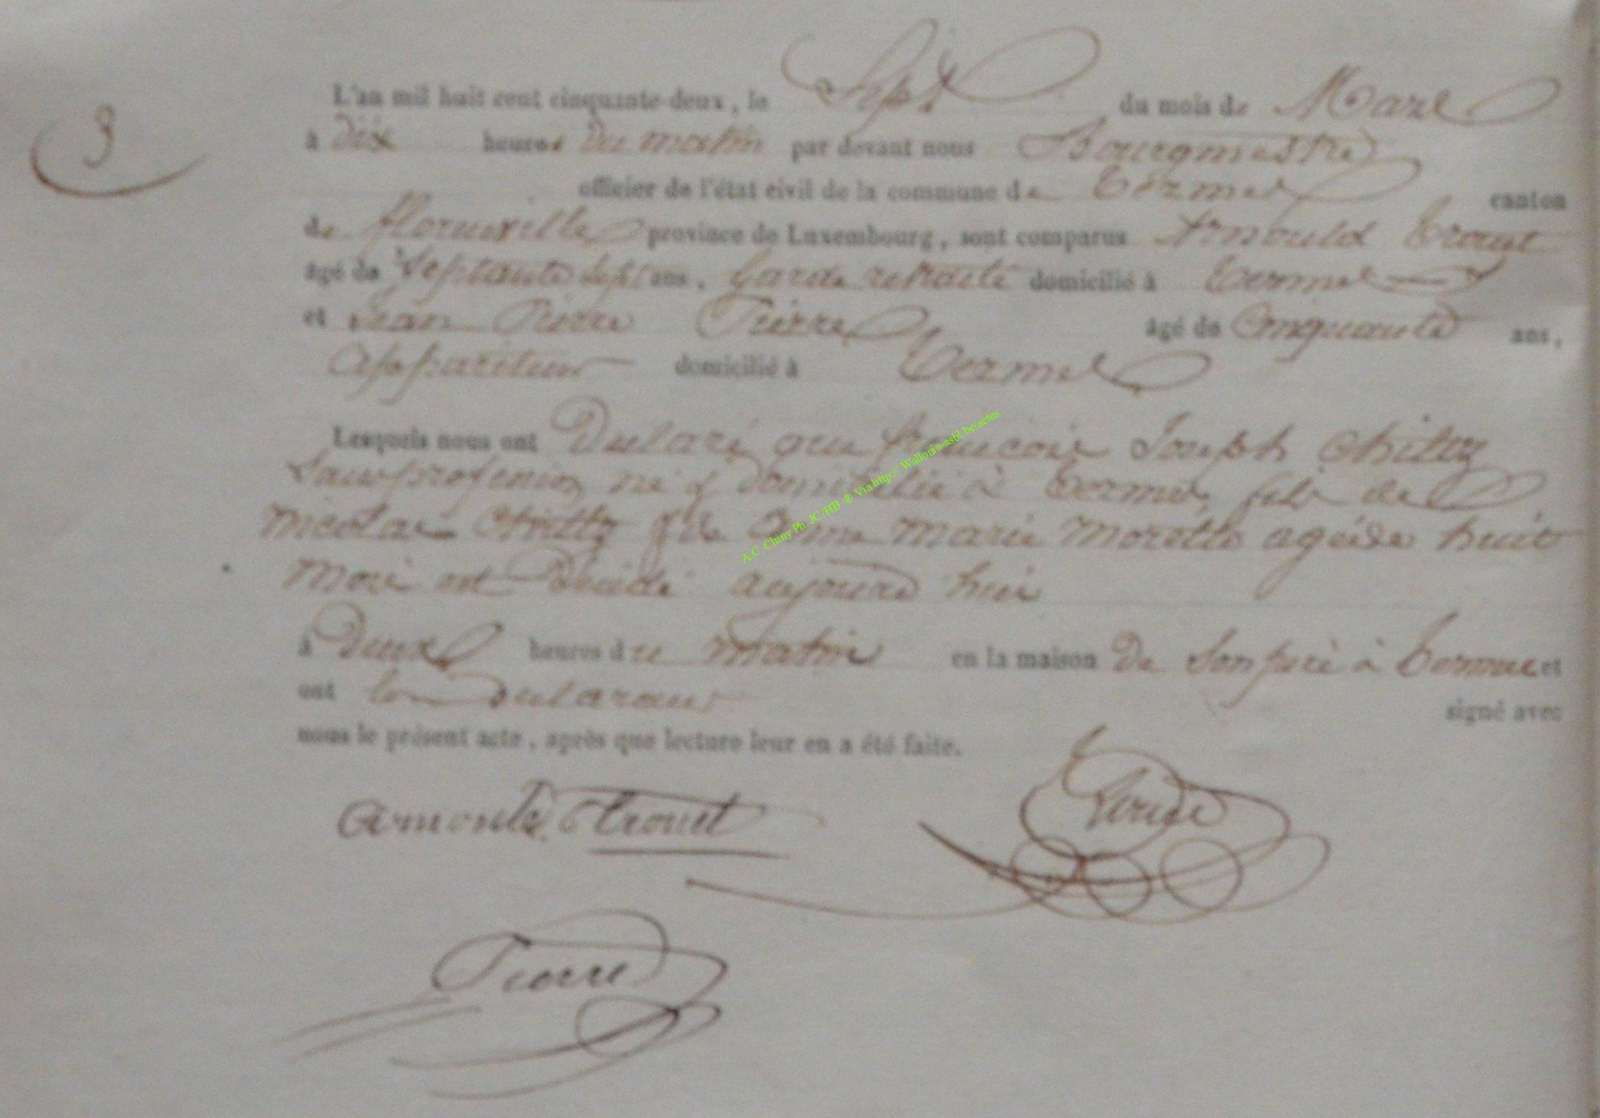 3
L'an mil huit cent cinquante-deux, le Sept du mois de Mars
à dix heures du matin par devant nous Bourgmestre
officier de l'état civil de la commune de Termes canton
de florenville province de Luxembourg, sont comparus Arnould Trouet
âgé de Septante Sept ans, Garde retraité domicilié à Termes
et Jean Pierre Pierre âgé de Cinquante ans,
appariteur domicilié à Termes
Lesquels nous ont Déclaré que françois Joseph thilly
Sans profession né & domicilié à Termes, fils de
nicolas thilly & de anne marie morette agée de huit
Mois est Décédé aujourd hui
à Deux heures du matin en la maison De Son père à Termes et
ont les Déclarans signé avec
nous le présent acte, après que lecture leur en a été faite.
arnould trouet
Pierre